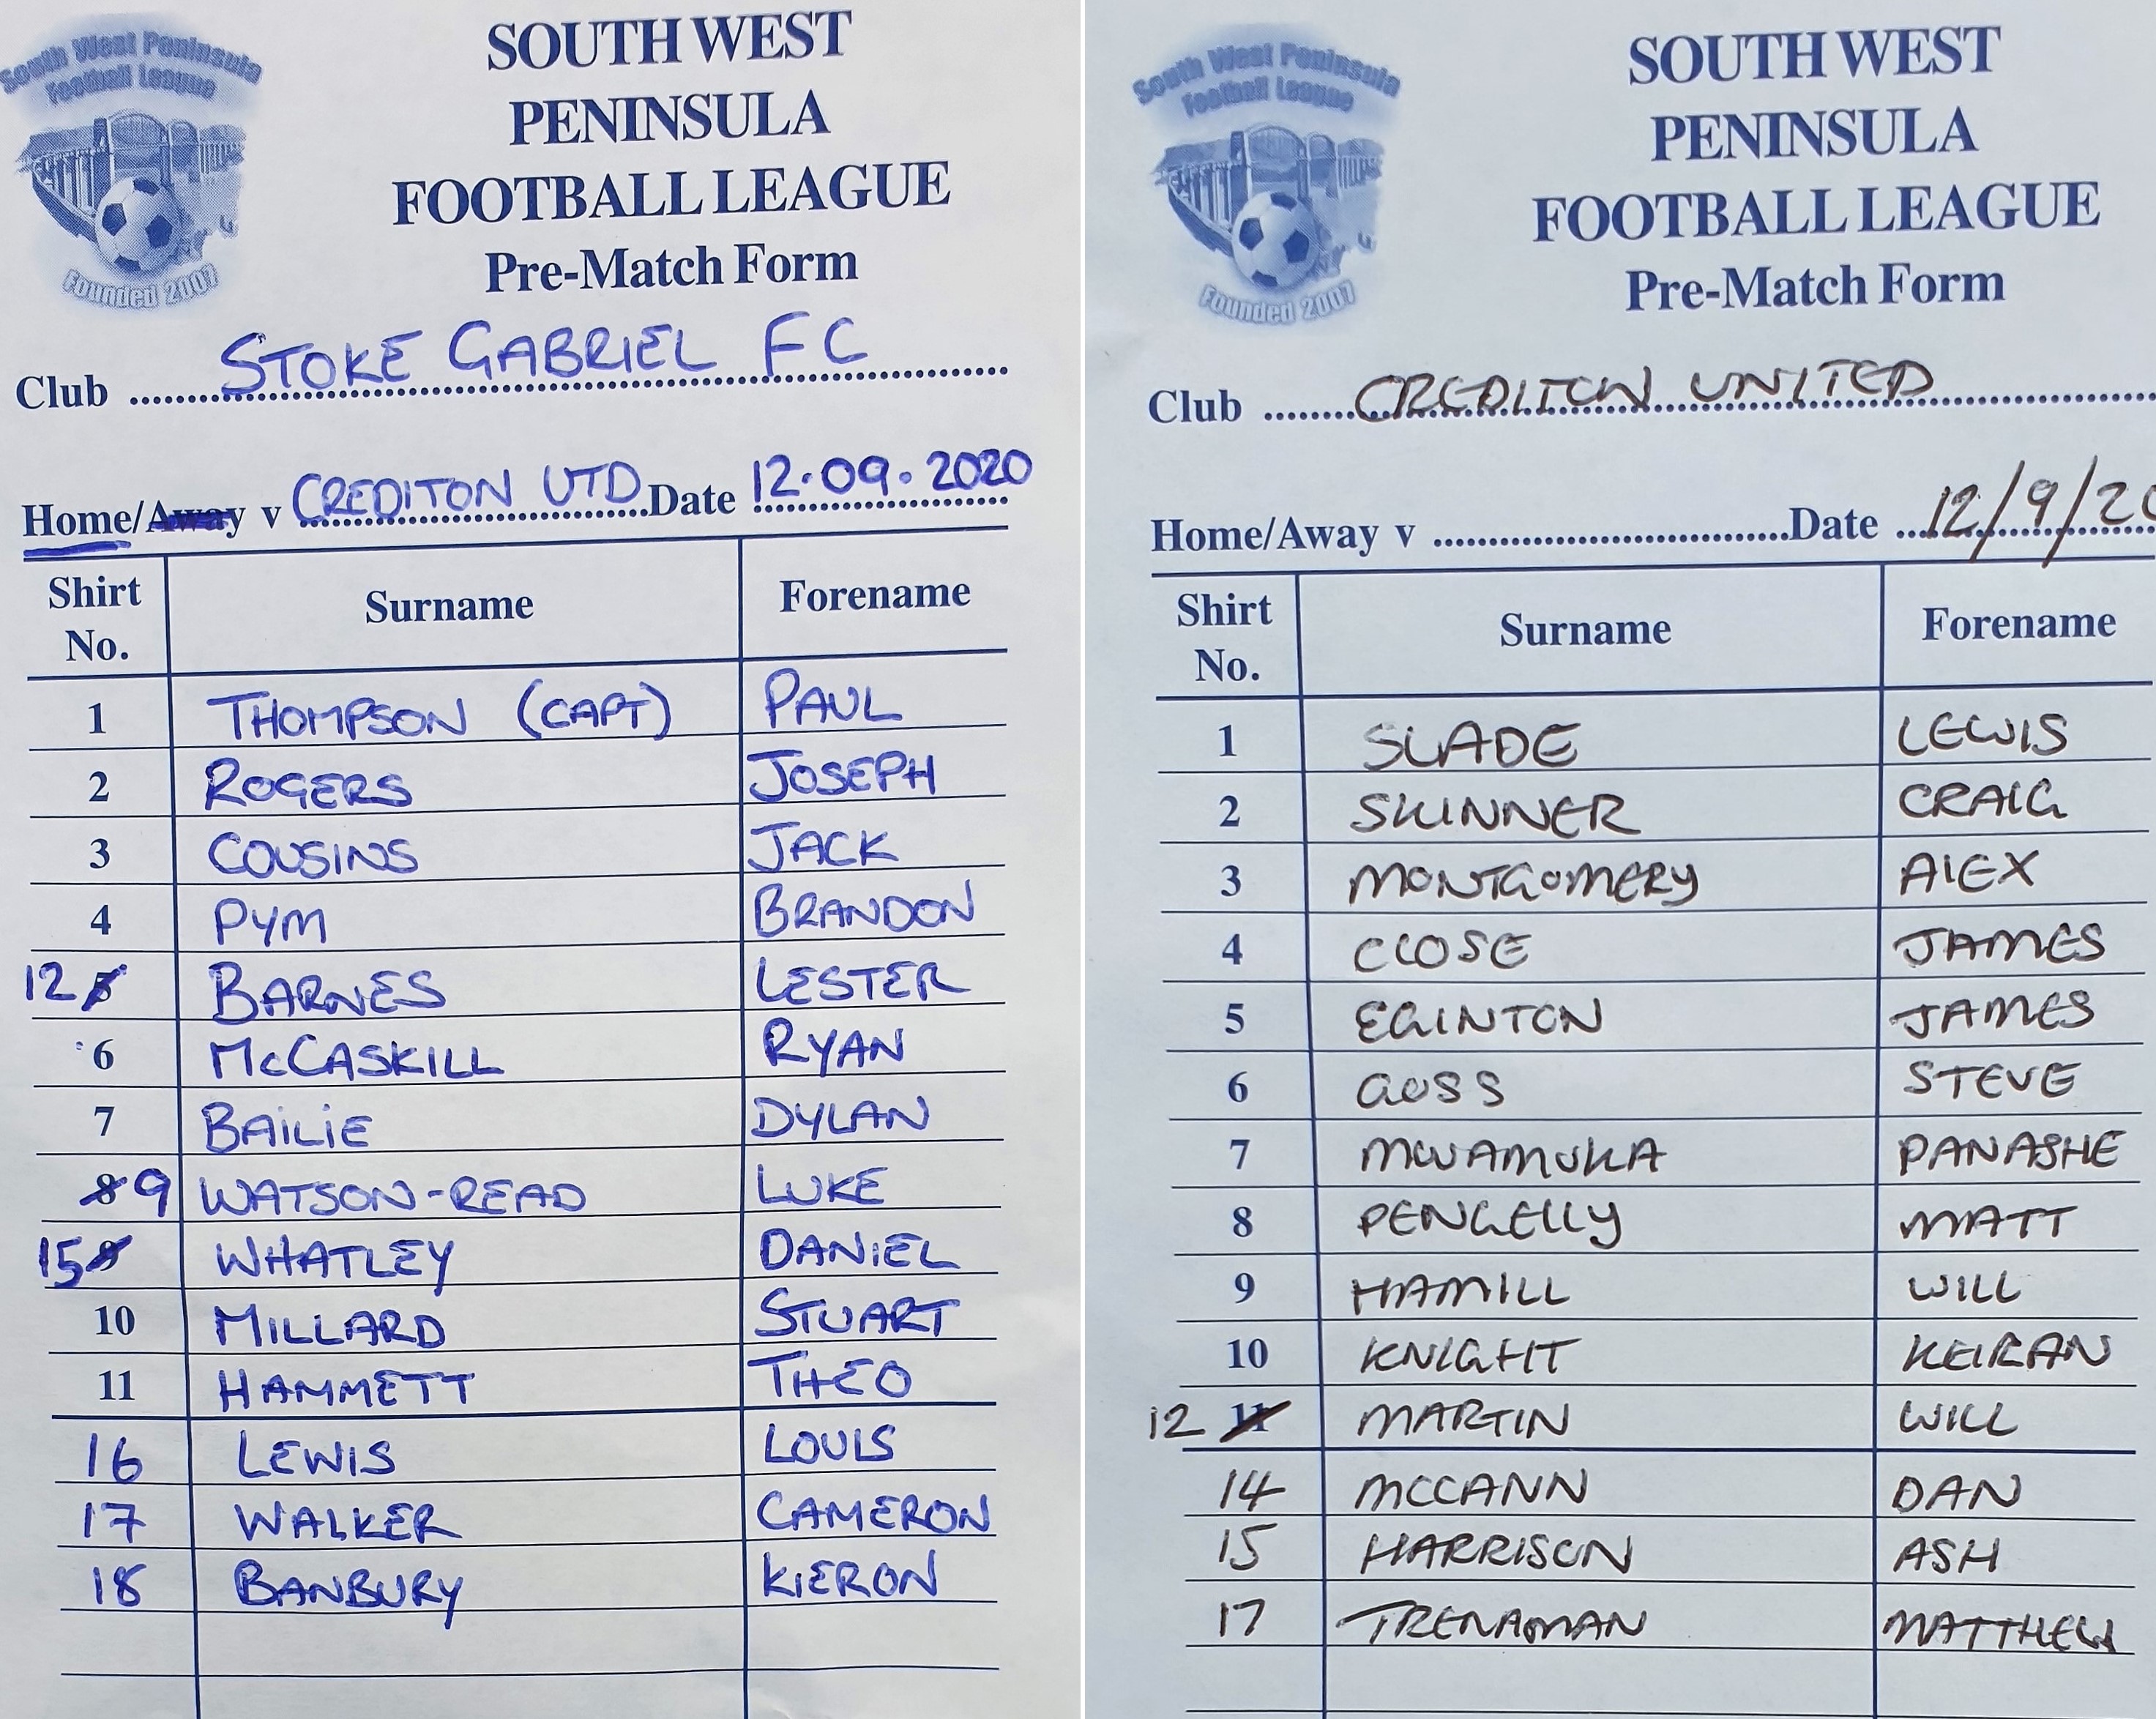 South West Peninsula
Football League
Founded 2007
SOUTH WEST
PENINSULA
FOOTBALL LEAGUE
Pre-Match Form
Club STOKE GABRIEL FC
Home/Away v CREDITON UTD Date 12.09.2020
Shirt No. Surname Forename
1 THOMPSON (CAPT) PAUL
2 ROGERS JOSEPH
3 COUSINS JACK
4 PYM BRANDON
12 5 BARNES LESTER
6 McCASKILL RYAN
7 BAILIE DYLAN
8 9 WATSON-READ LUKE
15 9 WHATLEY DANIEL
10 MILLARD STUART
11 HAMMETT THEO
16 LEWIS LOUIS
17 WALKER CAMERON
18 BANBURY KIERON
South West Peninsula
Football League
Founded 2007
SOUTH WEST
PENINSULA
FOOTBALL LEAGUE
Pre-Match Form
Club CREDITON UNITED
Home/Away v Date 12/9/20
Shirt No. Surname Forename
1 SLADE LEWIS
2 SKINNER CRAIG
3 MONTGOMERY ALEX
4 CLOSE JAMES
5 EGINTON JAMES
6 GOSS STEVE
7 MWAMUKA PANASHE
8 PENGELLY MATT
9 HAMILL WILL
10 KNIGHT KEIRAN
12 11 MARTIN WILL
14 MCCANN DAN
15 HARRISON ASH
17 TRENAMAN MATTHEW